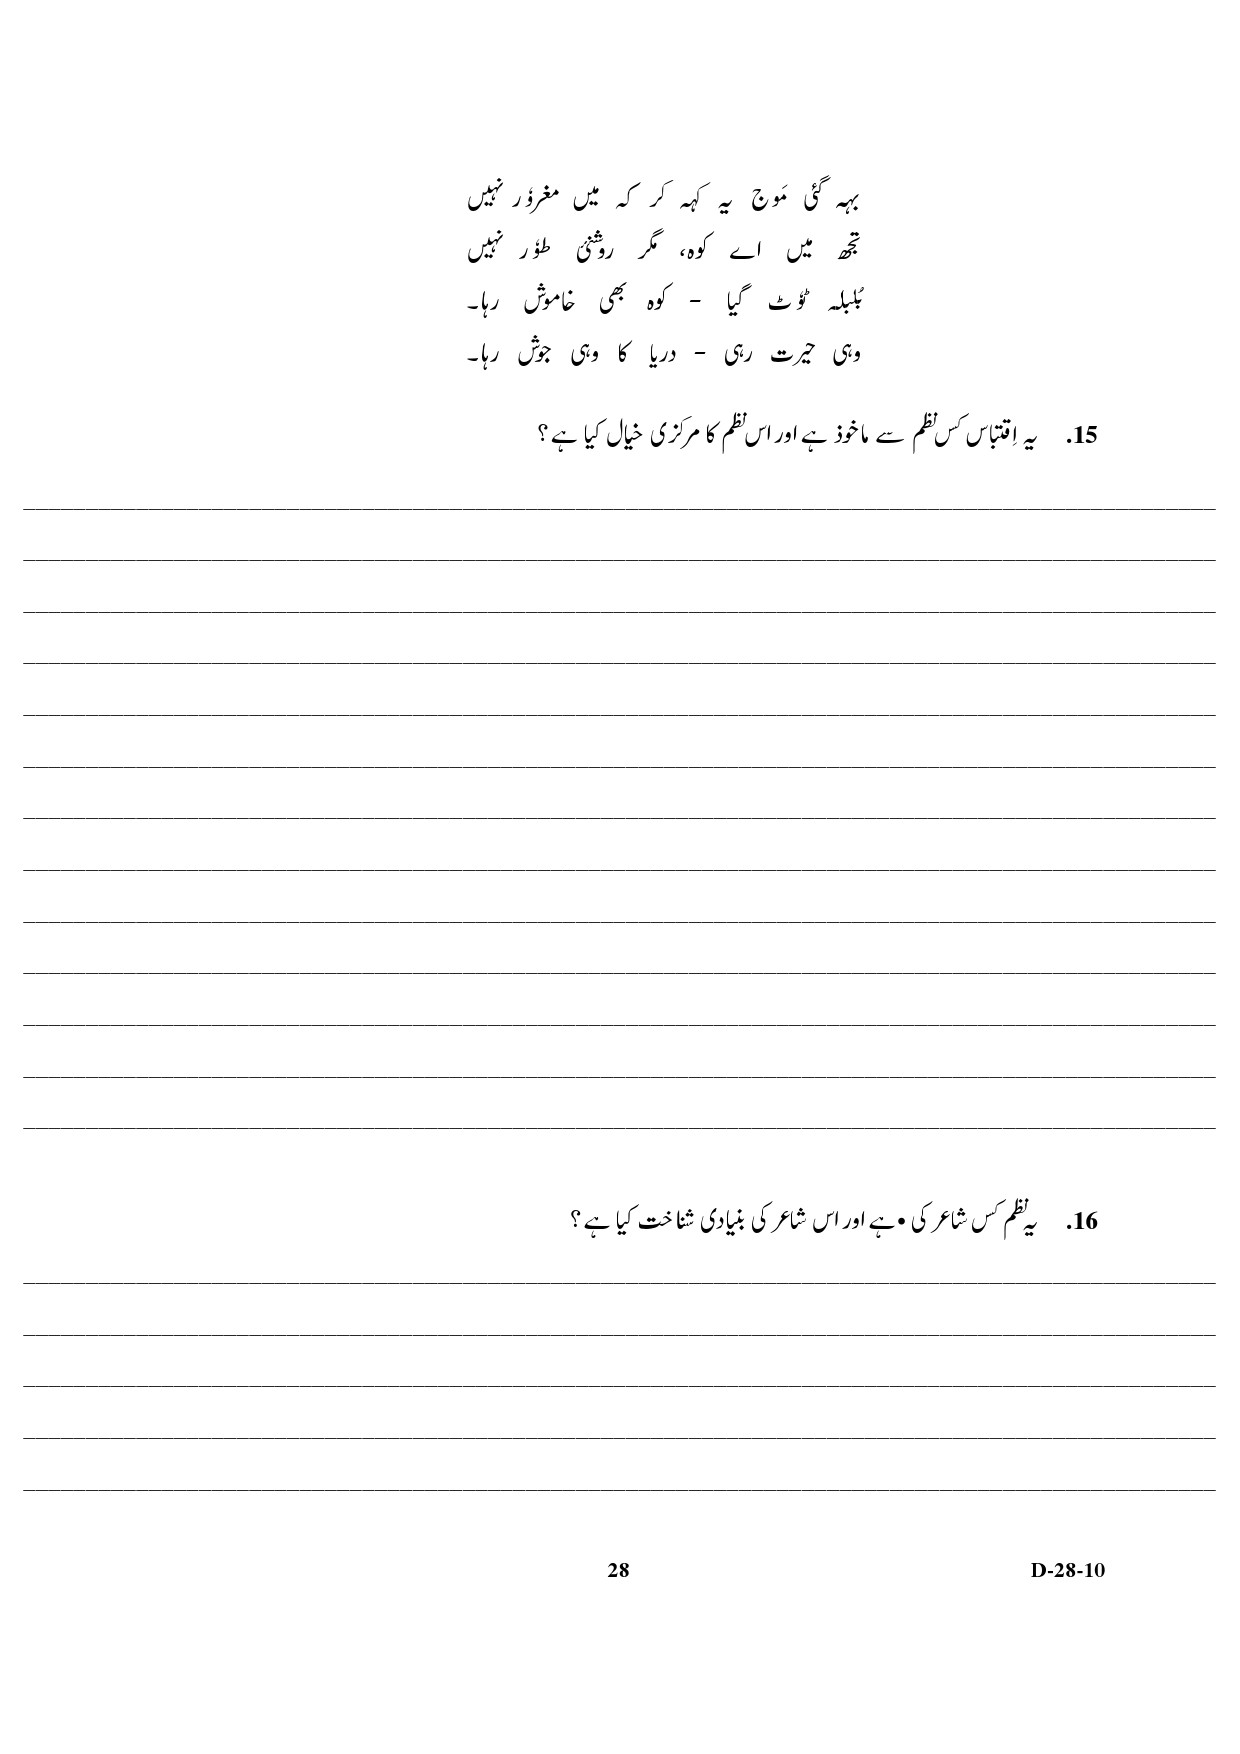 بہہ گئی مَوج یہ کہہ کر کہ میں مغرؤر نہیں
تجھ میں اے کوہ، مگر روشنئ طؤر نہیں
بُلبلہ ٹؤٹ گیا – کوہ بھی خاموش رہا۔
وہی حیرت رہی – دریا کا وہی جوش رہا۔
15. یہ اِقتباس کس نظم سے ماخوذ ہے اور اس نظم کا مرکزی خیال کیا ہے؟
16. یہ نظم کس شاعر کی • ہے اور اس شاعر کی بنیادی شناخت کیا ہے؟
28 D-28-10